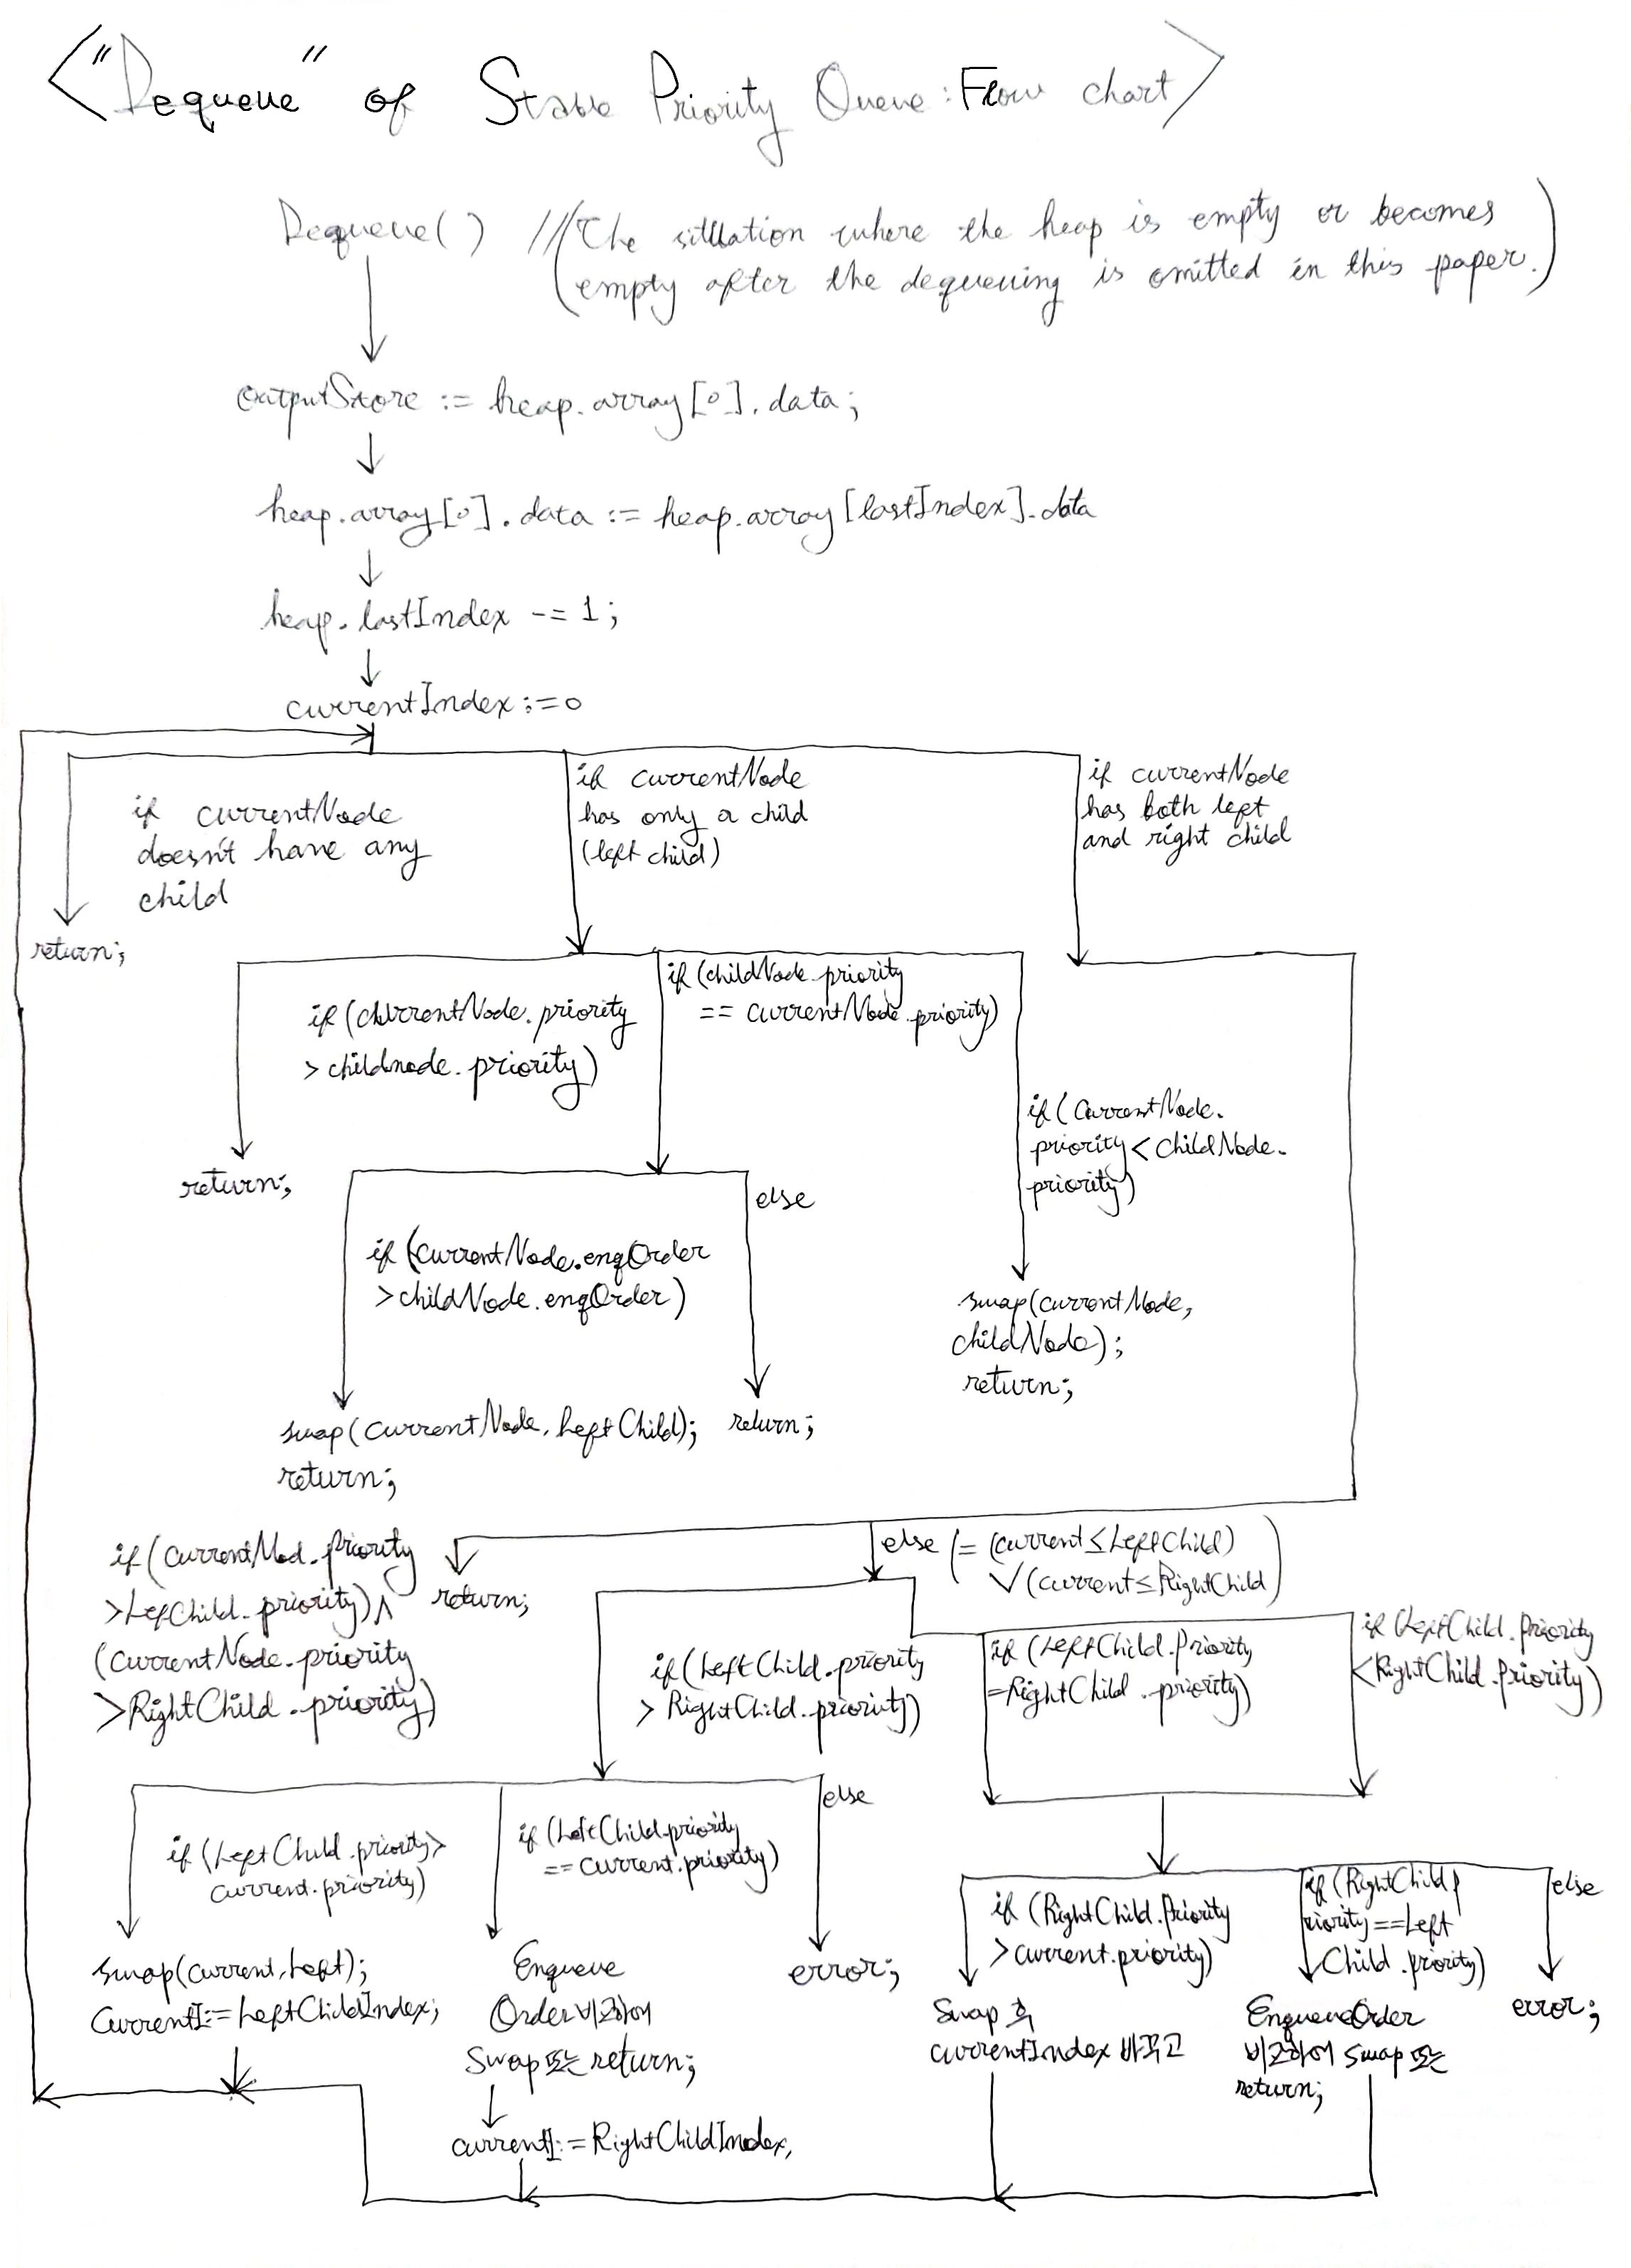 <"Dequeue" of Stable Priority Queue: Flow chart>
Dequeue() //(The situation where the heap is empty or becomes
empty after the dequeuing is omitted in this paper.)
outputStore := heap.array[0].data;
heap.array[0].data := heap.array[lastIndex].data
heap.lastIndex -= 1;
currentIndex := 0
if currentNode
doesn't have any
child
return;
if currentNode
has only a child
(left child)
if currentNode
has both left
and right child
if (currentNode.priority
> childnode.priority)
return;
if (childNode.priority
== currentNode.priority)
if (currentNode.
priority < childNode.
priority)
swap(currentNode,
childNode);
return;
if (currentNode.enqOrder
> childNode.enqOrder)
swap(currentNode, LeftChild);
return;
else
return;
if (currentNod.priority
> LefChild.priority) ∧
(currentNode.priority
> RightChild.priority)
return;
else (= (current ≤ LeftChild)
∨ (current ≤ RightChild)
if (LeftChild.priority
> RightChild.priority)
if (LeftChild.Priority
= RightChild.priority)
if (LeftChild.Priority
< RightChild.priority)
if (LeftChild.priority >
current.priority)
swap(current, Left);
CurrentI := LeftChildIndex;
if (LeftChild.priority
== current.priority)
Enqueue
Order 비교하여
Swap 또는 return;
currentI := RightChildIndex,
else
error;
if (RightChild.Priority
> current.priority)
Swap 후
currentIndex 바꾸고
if (RightChild.p
riority == Left
Child.priority)
EnqueueOrder
비교하여 swap 또는
return;
else
error;